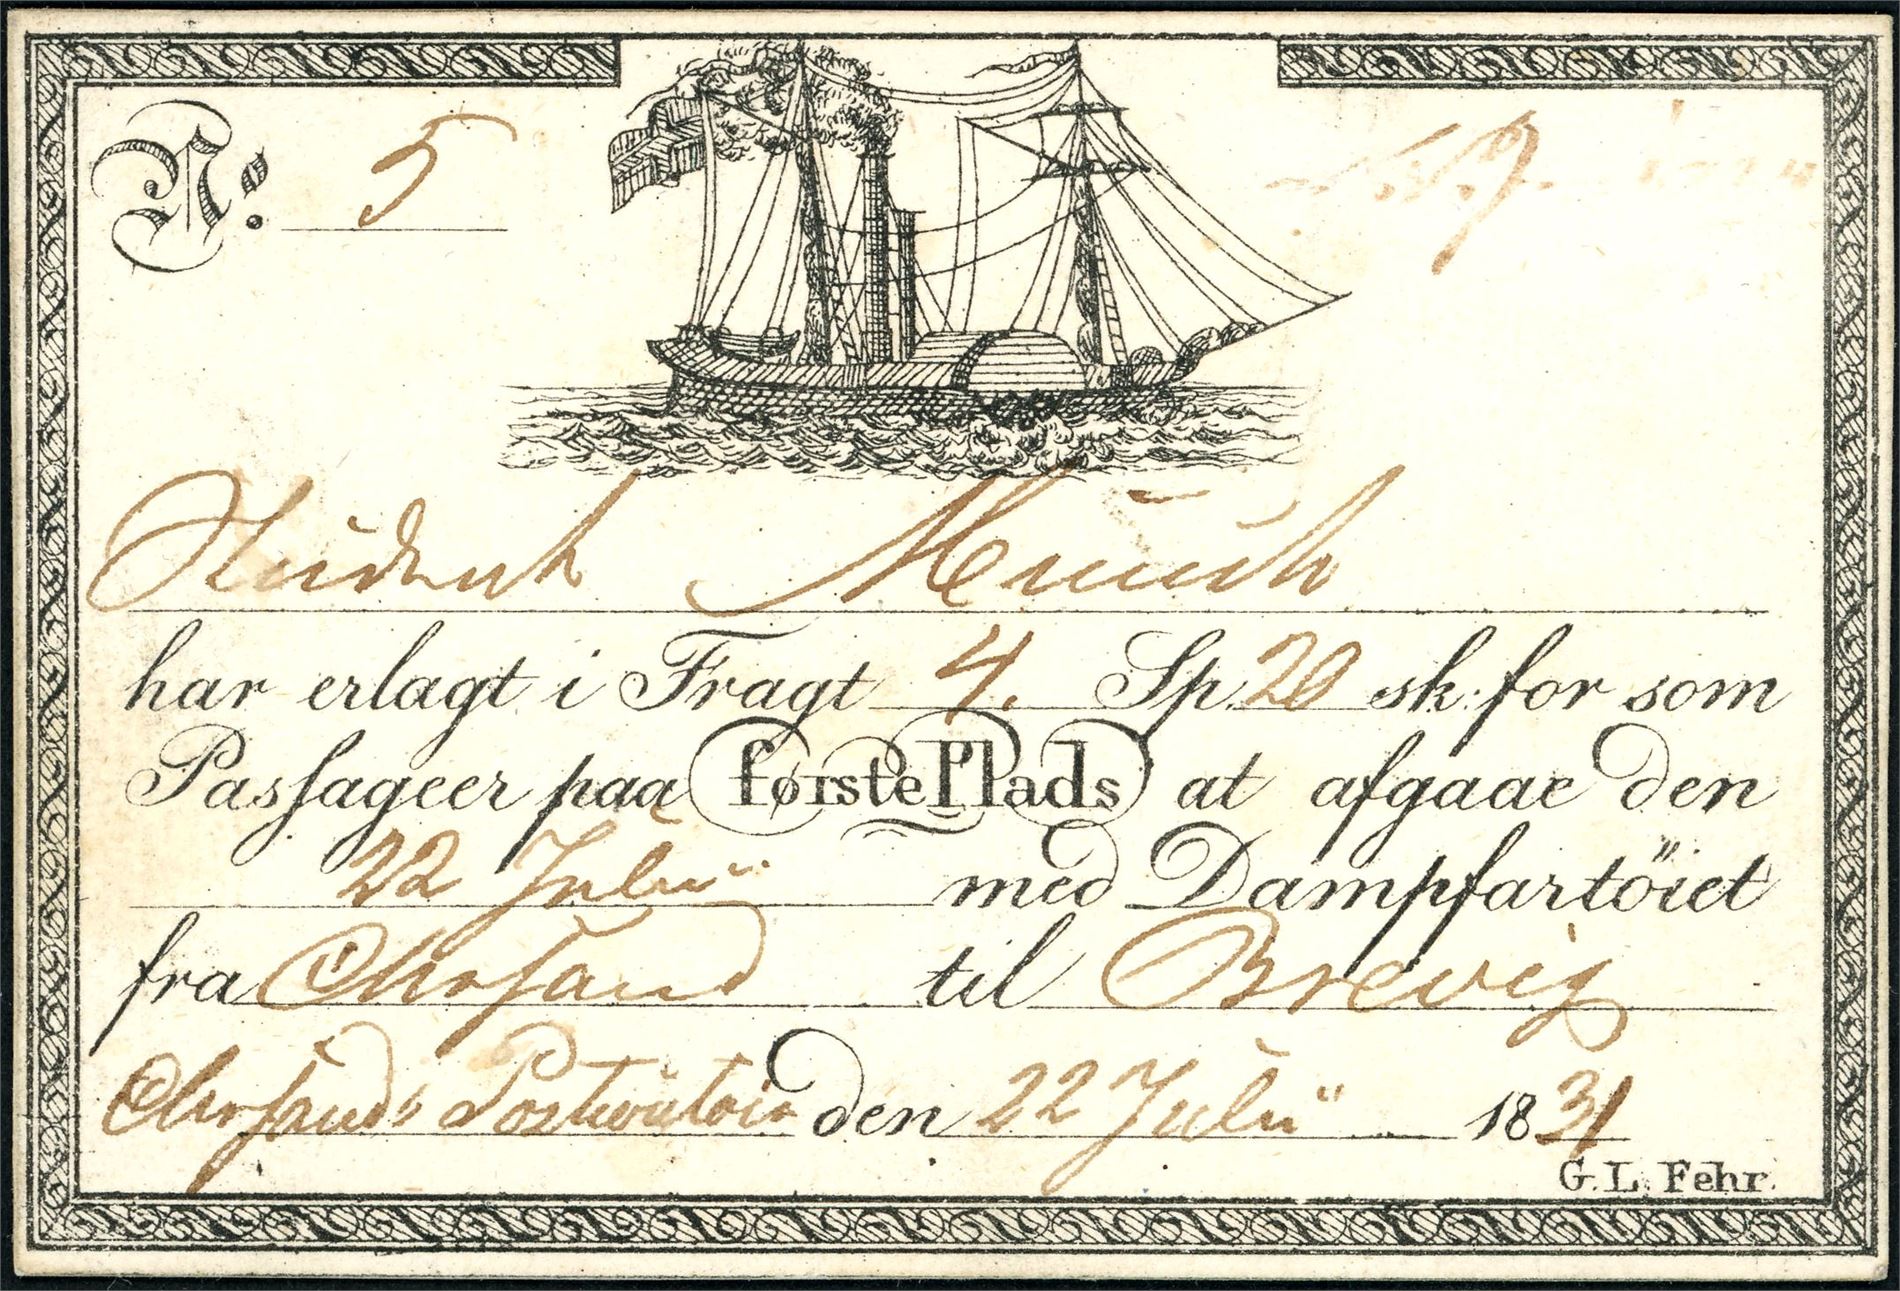 No. 5
Student Munch
har erlagt i Fragt 4. Sp. 20 sk: for som
Passageer paa første Plads at afgaae den
22 Julii med Dampfartöiet
fra Chrsand til Brevig
Chrsands Postcontoir den 22 Julii 1831
G. L. Fehr.